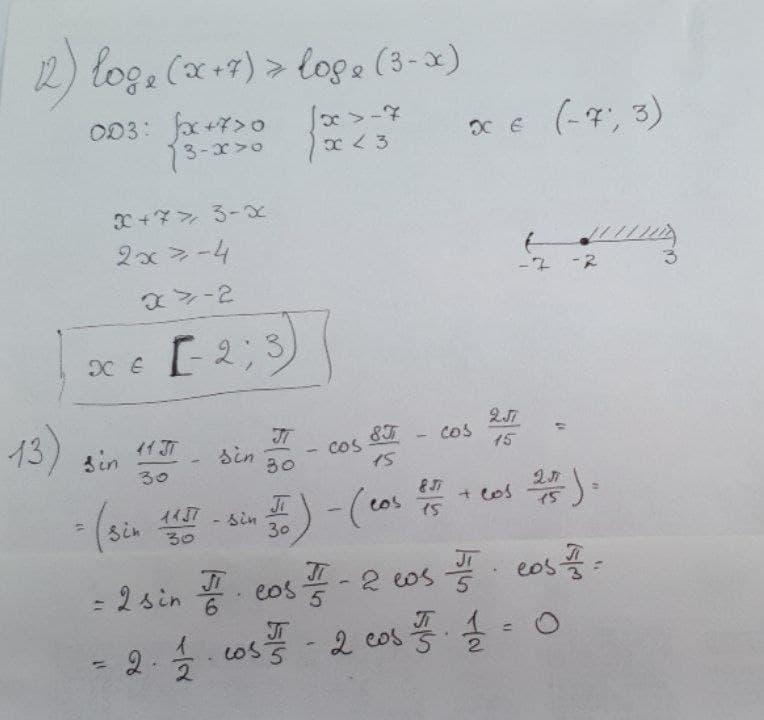 12) log₂(x+7) ≥ log₂(3-x)
ОДЗ: {x+7>0 {x>-7 x ∈ (-7; 3)
{3-x>0 {x<3
x+7 ≥ 3-x
2x ≥ -4
-7 -2 3
x ≥ -2
x ∈ [-2; 3)
13) sin 11π/30 - sin π/30 - cos 8π/15 - cos 2π/15 =
= (sin 11π/30 - sin π/30) - (cos 8π/15 + cos 2π/15) =
= 2 sin π/6 · cos π/5 - 2 cos π/5 · cos π/3 =
= 2 · 1/2 · cos π/5 - 2 cos π/5 · 1/2 = 0